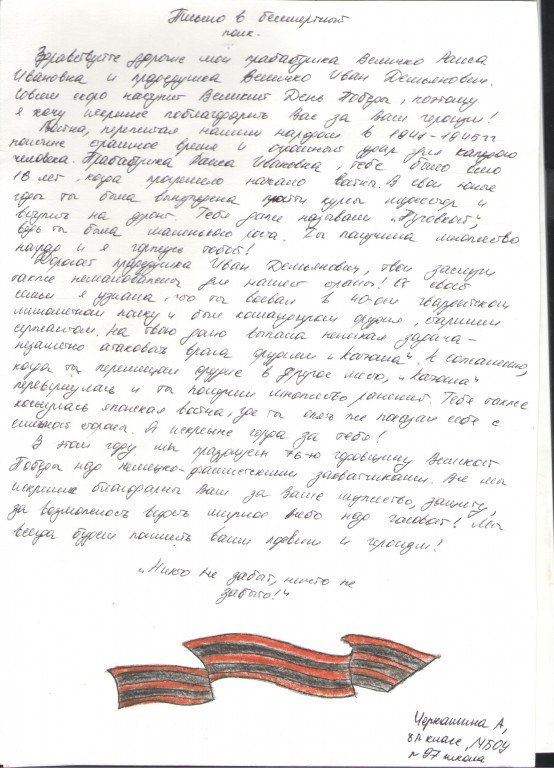 Письмо в бессмертный
полк.
Здравствуйте дорогие мои прабабушка Величко Раиса
Ивановна и прадедушка Величко Иван Демьянович.
Совсем скоро наступит Великий День Победы, поэтому
я хочу искренне поблагодарить Вас за Ваш героизм!
Война, пережитая нашим народом в 1941-1945гг
поистине страшное время и страшный удар для каждого
человека. Прабабушка Раиса Ивановна, тебе было всего
18 лет, когда прогремело начало войны. В свои юные
годы ты была вынуждена пройти курсы медсестёр и
вступить на фронт. Тебя даже называли „Пуговкой",
ведь ты была маленького роста. Ты получила множество
наград и я горжусь тобой!
Дорогой прадедушка Иван Демьянович, твои заслуги
также немаловажны для нашей страны! От своей
семьи я узнала, что ты воевал в 40-ом гвардейском
миномётном полку и был командиром орудия, старшим
сержантом. На твою долю выпала нелёгкая задача-
незаметно атаковать врага орудием „Катюша". К сожалению,
когда ты перемещал орудие в другое место, „Катюша"
перевернулась и ты получил множество ранений. Тебя также
коснулась японская война, где ты опять же показал себя с
стороны. Я искренне горда за тебя!
В этом году мы празднуем 76-ю годовщину Великой
Победы над немецко-фашистскими захватчиками. Все мы
искренне благодарны Вам за Ваше мужество, защиту,
за возможность видеть мирное небо над головой! Мы
всегда будем помнить ваши подвиги и героизм!
„Никто не забыт, ничто не
забыто!"
Черкашина А,
8А класс, МБОУ
№97 школа